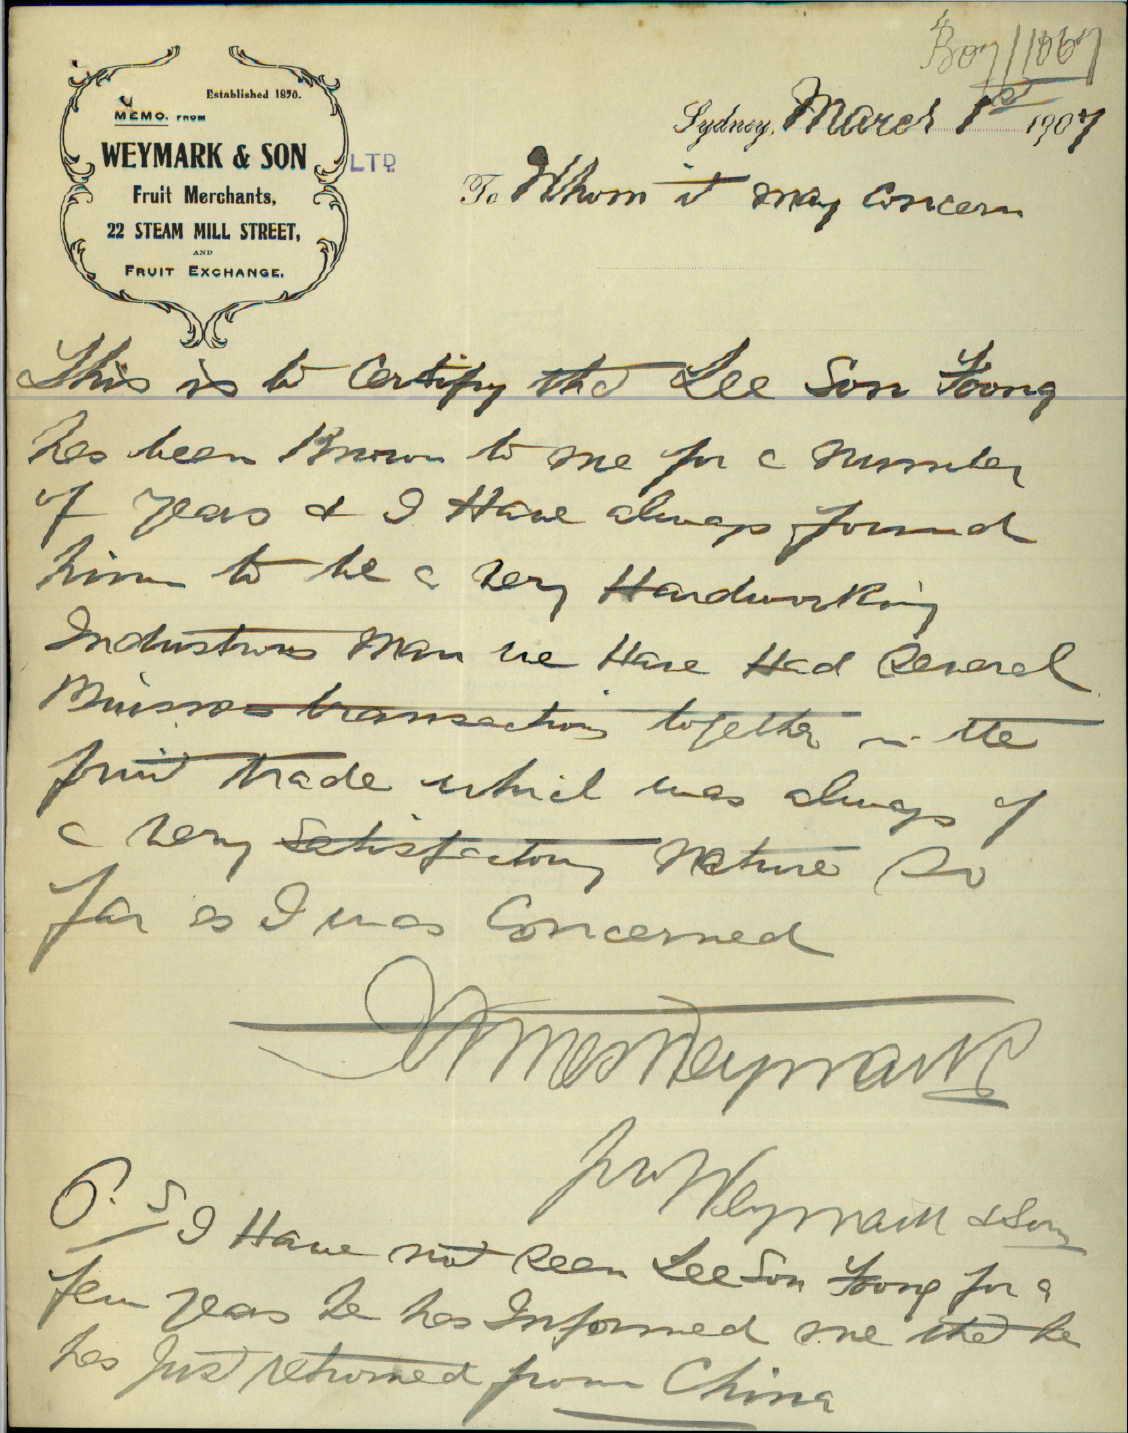 Established 1890.
MEMO. FROM
WEYMARK & SON LTD
Fruit Merchants,
22 STEAM MILL STREET,
AND
FRUIT EXCHANGE.
Sydney, March 1st 1907
To Whom it may Concern
This is to Certify that Lee Son Foong
has been Known to me for a number
of years & I Have always found
him to be a very Hardworking
Industrious Man we Have Had Several
Business transactions together in the
fruit trade which was always of
a very Satisfactory Nature So
far as I was Concerned
James Weymark
pro Weymark & Son
P.S I Have not Seen Lee Son Foong for a
few years he has Informed me that he
has Just returned from China